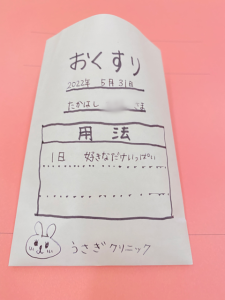 おくすり
2022年 5月31日
たかはし 様
用法
1日 好きなだけいっぱい
うさぎクリニック